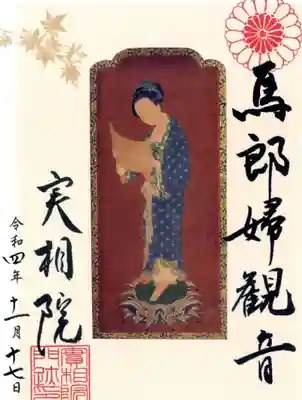 馬郎婦観音
実相院
令和四年 十一月 十七日
實相院
門跡之印